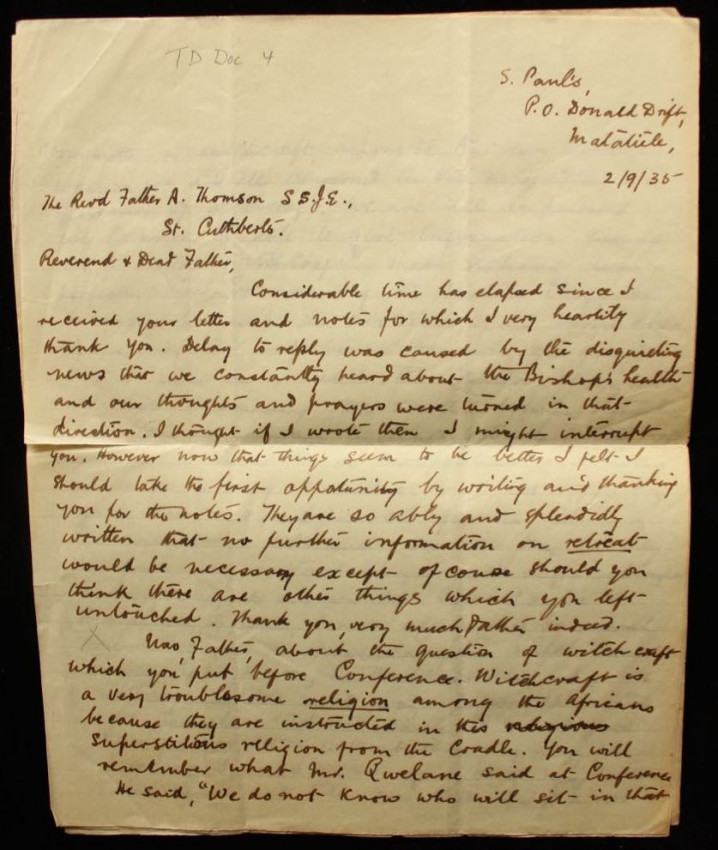 TD Doc 4
S. Paul's,
P.O. Donald Drift,
Matatiele,
2/9/35
The Revd Father A. Thomson S.S.J.E.,
St. Cuthberts.
Reverend & Dear Father,
Considerable time has elapsed since I
received your letter and notes for which I very heartily
thank you. Delay to reply was caused by the disquieting
news that we constantly heard about the Bishop's health
and our thoughts and prayers were turned in that
direction. I thought if I wrote then I might interrupt
you. However now that things seem to be better I felt I
should take the first oppatunity by writing and thanking
you for the notes. They are so ably and splendidly
written that no further information on retreat
would be necessary except of course should you
think there are other things which you left
untouched. Thank you, very much Father indeed.
X
Now, Father, about the question of witchcraft
which you put before Conference. Witchcraft is
a very troublesome religion among the Africans
because they are instructed in this religious
superstitious religion from the Cradle. You will
remember what Mr. Qwelane said at Conference
He said, "We do not know who will sit in that